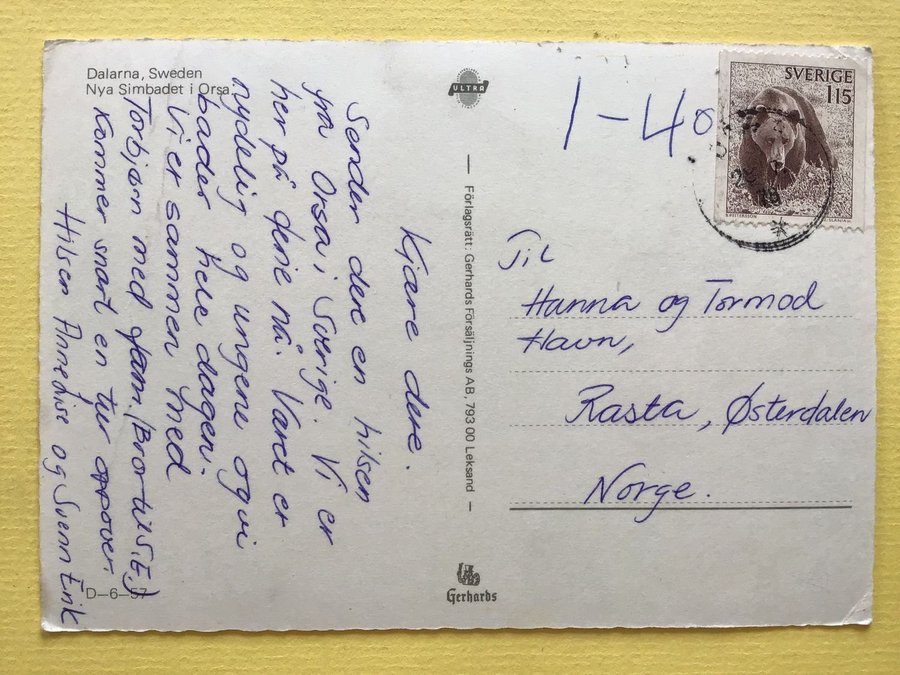 Dalarna, Sweden
Nya Simbadet i Orsa.
Kjære dere.
Sender dere en hilsen
fra Orsa i Sverige. Vi er
her på ferie nå. Været er
nydelig og ungene og vi
bader hele dagen.
Vi er sammen med
Torbjørn med fam. (Bror til S.E.)
Kommer snart en tur oppover.
Hilsen Anne Lise og Svenn Erik
D—6—57
ULTRA
— Förlagsrätt: Gerhards Försäljnings AB, 793 00 Leksand —
Gerhards
1-40
SVERIGE
115
Til
Hanna og Tormod
Havn,
Rasta, Østerdalen
Norge.